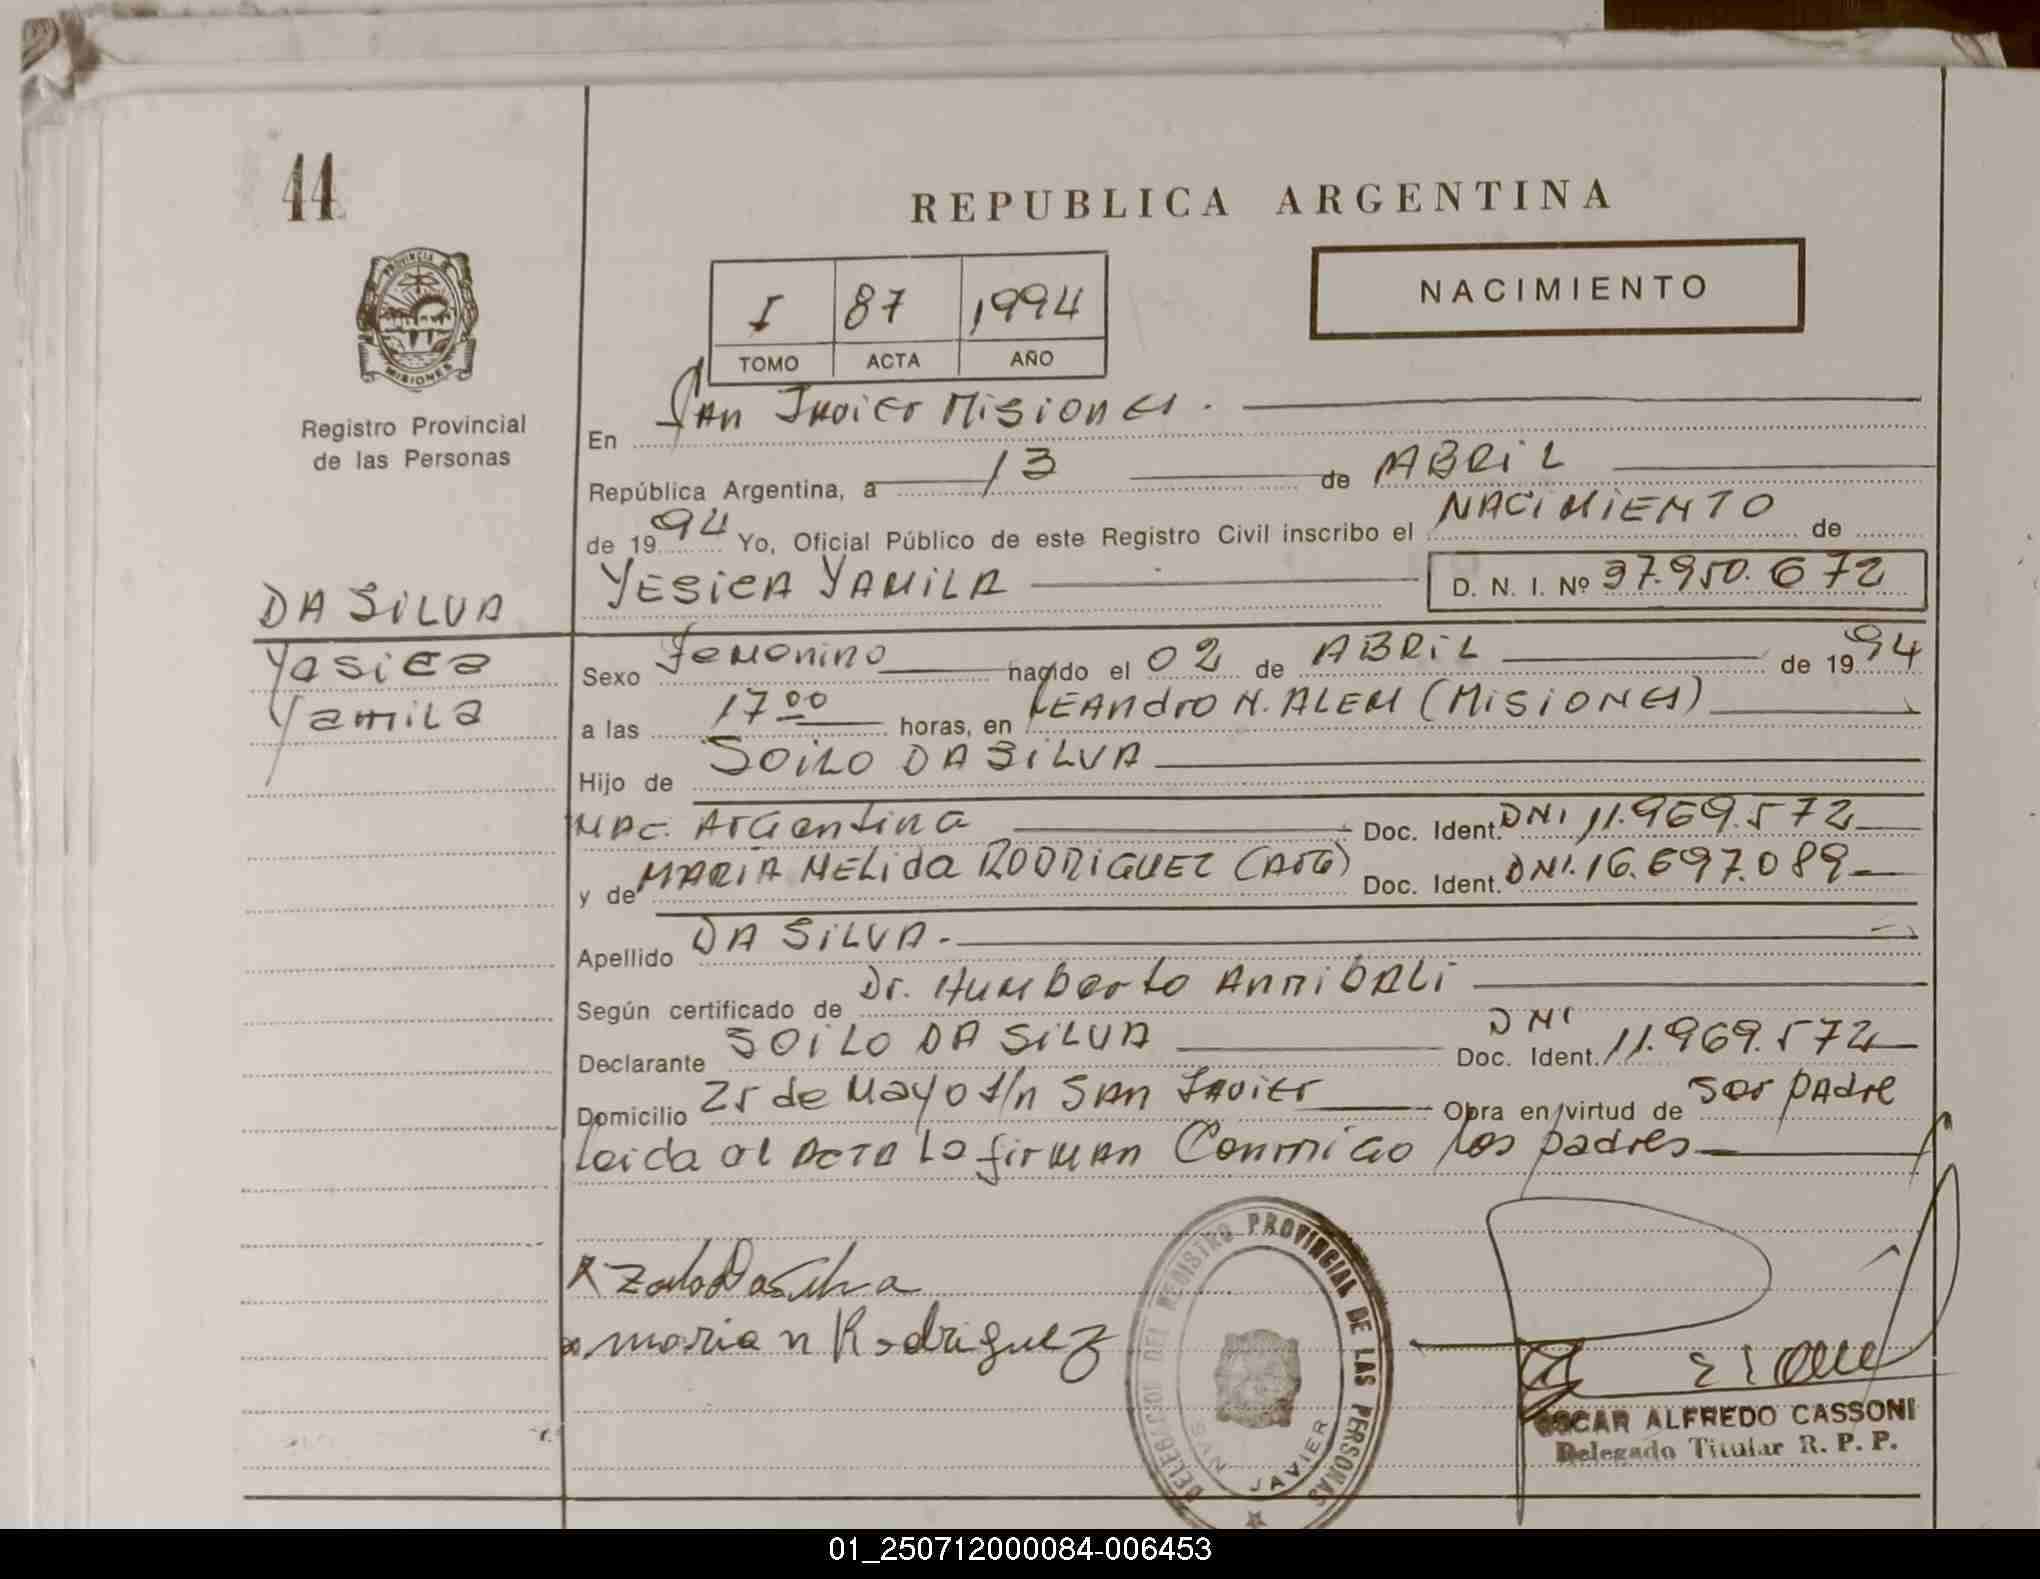 44
REPUBLICA ARGENTINA
NACIMIENTO
I 87 1994
TOMO ACTA AÑO
PROVINCIA DE
MISIONES
Registro Provincial
de las Personas
En San Javier Misiones.
República Argentina, a 13 de ABRIL
de 1994 Yo, Oficial Público de este Registro Civil inscribo el NACIMIENTO de
YESICA YAMILA D. N. I. Nº 37.950.672
DA SILVA
Yesica
Yamila
Sexo Femenino nacido el 02 de ABRIL de 1994
a las 17 00 horas, en LEANDRO N. ALEM (MISIONES)
Hijo de SOILO DA SILVA
NAC. Argentina Doc. Ident. DNI 11.969.572
y de MARIA NELIDA RODRIGUEZ (ARG) Doc. Ident. DNI. 16.697.089
Apellido DA SILVA.
Según certificado de Dr. Humberto Annibali
Declarante SOILO DA SILVA Doc. Ident. DNI 11.969.572
Domicilio 25 de Mayo s/n SAN JAVIER Obra en virtud de ser padre
leida el ACTA la firman Conmigo los padres
Da Silva
Maria n Rodriguez
DELEGACION DEL REGISTRO PROVINCIAL DE LAS PERSONAS
SAN JAVIER
OSCAR ALFREDO CASSONI
Delegado Titular R. P. P.
01_250712000084-006453